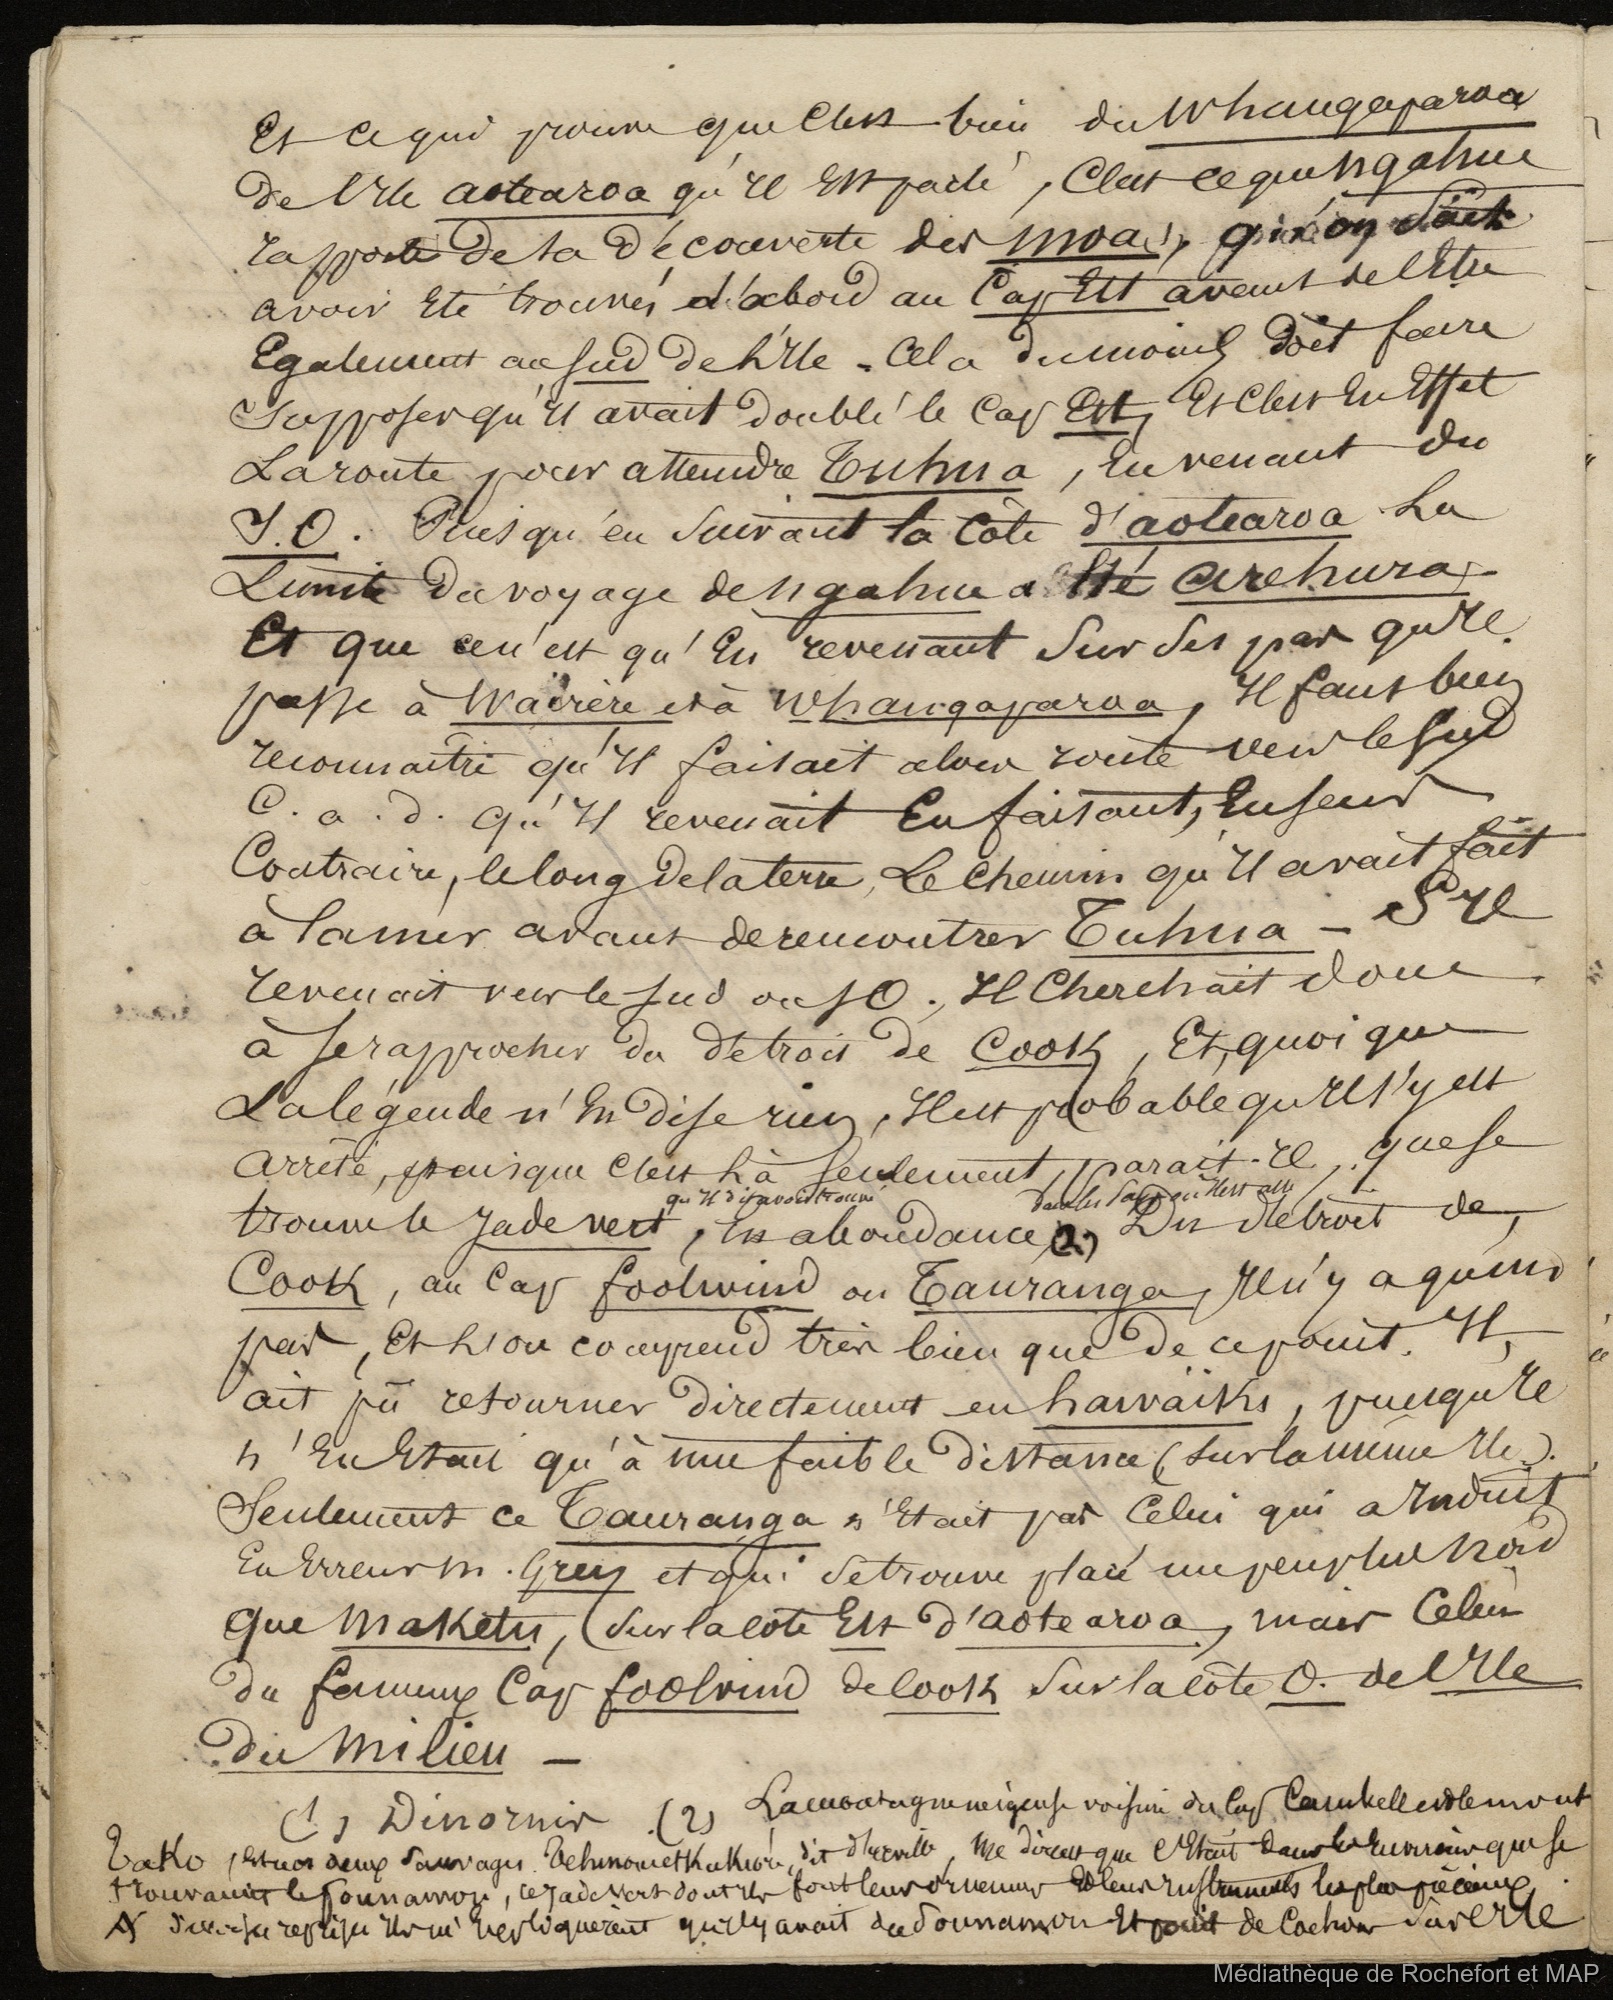 Et ce qui prouve que c'est bien du Whangaparoa
de l'Ile aotearoa qu'il est parlé, c'est ce que ngahue
rapporte de sa découverte des moa(1), qu'on sait
avoir été trouvés d'abord au Cap Est avant de l'être
Egalement au sud de l'Ile - Cela du moins doit faire
supposer qu'il avait doublé le Cap Est, et c'est en effet
La route pour atteindre Tuhua, en venant du
S.O. Puisqu'en suivant la côte d'aotearoa la
Limite du voyage de ngahue a été arehura
Et que ce n'est qu'en revenant sur ses pas qu'il
passe à Wairère et à Whangaparoa, il faut bien
reconnaitre qu'il faisait alors route vers le sud
C. a. d. qu'il revenait en faisant, en sens
Contraire, le long de la terre, Le chemin qu'il avait fait
à la mer avant de rencontrer Tuhua - S'il
revenait vers le sud ou SO., il cherchait donc
à se rapprocher du détroit de Cook, Et, quoique
La légende n'en dise rien, il est probable qu'il s'y est
arrêté, puisque c'est là seulement, parait-il, que se
qu'il dit avoir trouvé dans les pays où il est allé
trouve le jade vert, en abondance (2) Du détroit de
Cook, au Cap foolwind ou Tauranga, il n'y a qu'un
pas, et l'on comprend très bien que de ce point il
ait pû retourner directement en hawaïki, puisqu'il
n'en était qu'à une faible distance (sur la même Ile).
Seulement ce Tauranga n'était pas celui qui a induit
en erreur M. Grey et qui se trouve placé un peu plus nord
que Maketu, (sur la côte Est d'aotearoa, mais celui
du fameux Cap foolwind de Cook sur la côte O. de l'Ile
du Milieu -
(1) Dinornis (2) La montagne neigeuse voisine du Cap Campbell est le mont
Tako, et nos deux sauvages Tehinoui et Kokioré, dit d'Urville, me dirent que c'était dans les environs que se
trouvait le pounamou, ce jade vert dont ils font leurs ornemens et leurs instruments les plus précieux
reprise ils m'expliquèrent qu'il y avait du pounamou et point de Cochons sur l'Ile